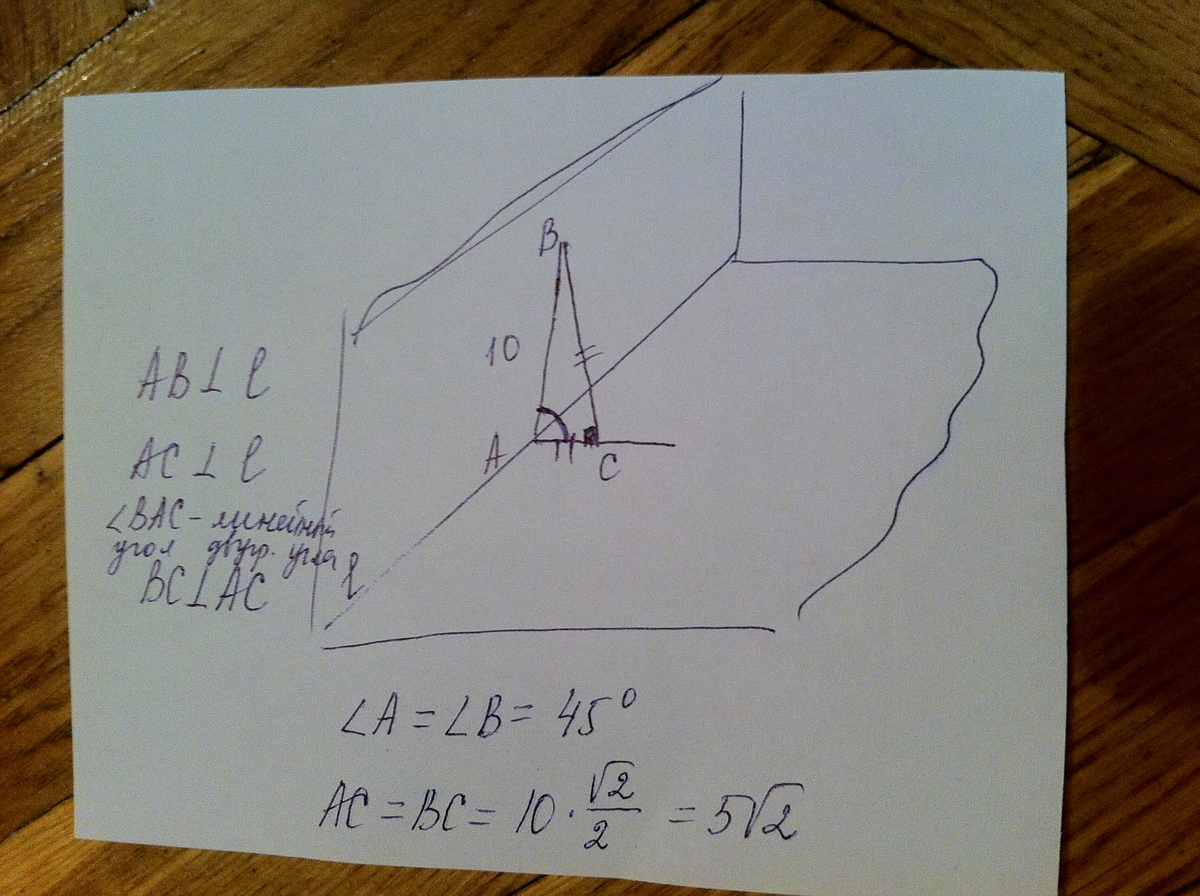 B
10
A
C
ℓ
AB⊥ℓ
AC⊥ℓ
∠BAC-линейный
угол двугр. угла
BC⊥AC
∠A=∠B=45°
AC=BC=10·√2/2=5√2